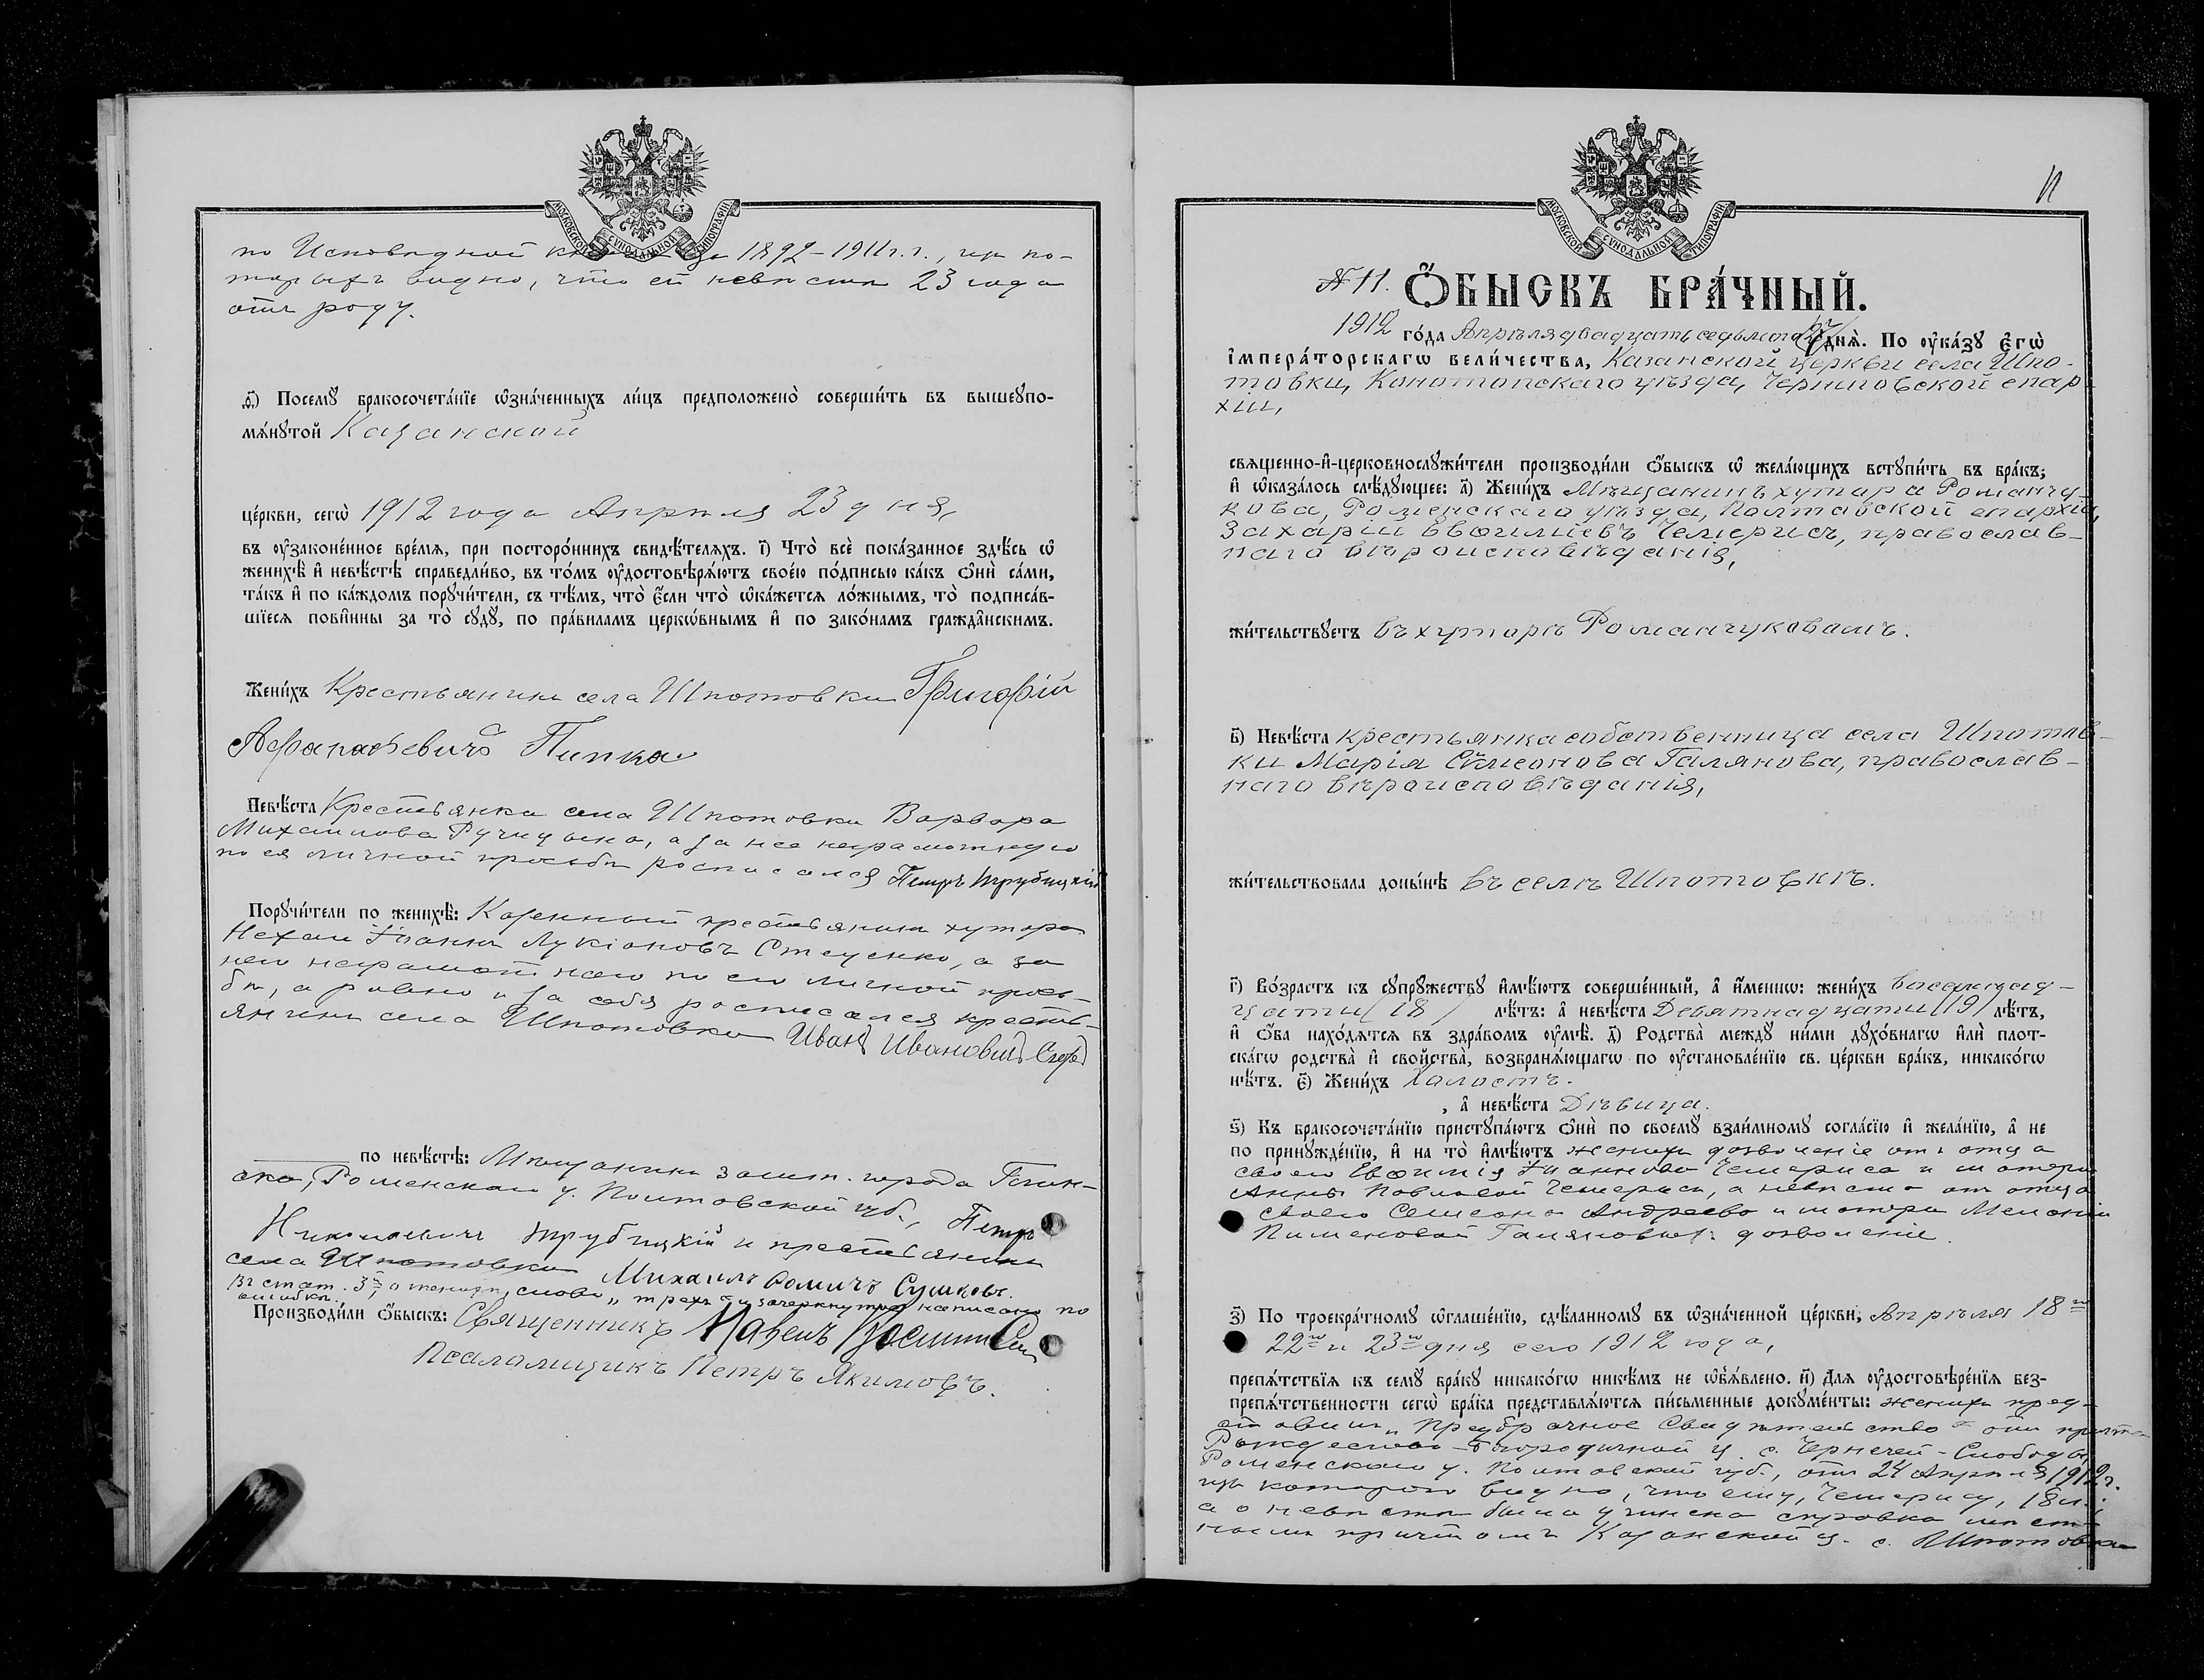 МОСКОВСКОЙ СѴНОДАЛЬНОЙ ТИПОГРАФІИ
по Исповѣдной за 1892-1911 г.г., изъ ко-
торыхъ видно, что ей невѣстѣ 23 года
отъ роду.
Ѳ҃) Посемꙋ̀ бракосочета́нїе ѡ҆зна́ченныхъ ли́цъ предположено̀ соверши́ть въ вышеꙋпо-
мѧ́нꙋтой Казанской
це́ркви, сегѡ̀ 1912 года Апрѣля 23 дня,
въ ᲂу҆законе́нное вре́мѧ, при посторо́ннихъ свидѣ́телѧхъ. І҃) Что̀ всѐ пока́занное здѣ́сь ѡ҆
женихѣ̀ и҆ невѣ́стѣ справедли́во, въ то́мъ ᲂу҆достовѣрѧ́ютъ свое́ю по́дписью ка́къ ѻ҆нѝ са́ми,
та́къ и҆ по ка́ждомъ порꙋчи́тели, съ тѣ́мъ, что̀ є҆́сли что̀ ѡ҆ка́жетсѧ ло́жнымъ, то̀ подписа́в-
шїесѧ пови́нны за то̀ сꙋдꙋ̀, по пра́виламъ церкѡ́внымъ и҆ по зако́намъ гражда̂нскимъ.
Жени́хъ Крестьянинъ села Шпотовки Григорій
Афанасьевичъ Пипка
Невѣ́ста Крестьянка села Шпотовки Варвара
Михаилова а за нее неграмотную
по ея личной просьбѣ росписался Петръ Трубицкій
Порꙋчи́тели по женихѣ̀: Казенный крестьянинъ хутора
Нехаи Іоаннъ Лукіановъ Стеценко, а за
него неграмотнаго по его личной прозь-
бѣ, а равно и за себя росписался кресть-
янинъ села Шпотовки Иванъ Ивановичъ
по невѣ́стѣ: Мѣщанинъ зашт. города Глин-
ска, Роменскаго у. Полтавской губ., Петръ
Николаевичъ Трубицкій и крестьянинъ
села Шпотовки Михаилъ Фомичъ Сушковъ.
Въ стат. 3й, о женихѣ, слово „трехъ" и зачеркнутое написано по
ошибкѣ.
Производи́ли ѻ҆́быскъ: Священникъ Павелъ
Псаломщикъ Петръ Якимовъ.
11
МОСКОВСКОЙ СѴНОДАЛЬНОЙ ТИПОГРАФІИ
№ 11. Ѻ҆́БЫСКЪ БРА́ЧНЫЙ.
1912 го́да Апрѣля двадцать седьмого 27 днѧ̀. По ᲂу҆ка́зꙋ Є҆гѡ̀
І҆мпера́торскагѡ вели́чества, Казанской церкви села Шпо-
товки, Конотопскаго уѣзда, Черниговской епар-
хіи,
свѧщенно-и҆-церковнослꙋжи́тели производи́ли ѻ҆́быскъ ѡ҆ жела́ющихъ встꙋпи́ть въ бра́къ;
и҆ ѡ҆каза́лось слѣ́дꙋющее: а҃) Жени́хъ Мѣщанинъ хутора Романчу-
кова, Роменскаго уѣзда, Полтавской епархіи,
Захарій Евѳиміевъ Чемерисъ, православ-
наго вѣроисповѣданія,
жи́тельствꙋетъ въ хуторѣ Романчуковомъ.
в҃) Невѣ́ста крестьянка собственница села Шпотов-
ки Марія Сѵмеонова Галянова, православ-
наго вѣроисповѣданія,
жи́тельствовала доны́нѣ въ селѣ Шпотовкѣ.
г҃) Во́зрастъ къ сꙋпрꙋ́жествꙋ и҆мѣ́ютъ соверше́нный, а҆ и҆́менно: жени́хъ восемнад-
цати /18/ лѣ́тъ: а҆ невѣ́ста Девятнадцати /19/ лѣ́тъ,
и҆ ѻ҆́ба нахо́дѧтсѧ въ здра́вомъ ᲂу҆мѣ̀. д҃) Родства̀ междꙋ̀ ни́ми дꙋхо́внагѡ и҆лѝ плот-
ска́гѡ родства̀ и҆ сво́йства̀, возбранѧ́ющагѡ по ᲂу҆становле́нїю св. це́ркви бра́къ, никако́гѡ
нѣ́тъ. є҃) Жени́хъ Холостъ.
, а҆ невѣ́ста Дѣвица.
ѕ҃) Къ бракосочета́нїю пристꙋпа́ютъ ѻ҆нѝ по своемꙋ̀ взаи́мномꙋ согла́сїю и҆ жела́нїю, а҆ не
по принꙋжде́нїю, и҆ на то̀ и҆мѣ́ютъ женихъ дозволеніе отъ отца
своего Евѳимія Іоаннова Чемериса и матери
Анны Павловой Чемерисъ, а невѣста отъ отца
своего Симеона Андреева и матери Меланіи
Пименовой Галяновыхъ дозволеніе.
з҃) По троекра́тномꙋ ѡ҆глаше́нїю, сдѣ́ланномꙋ въ ѡ҆зна́ченной це́ркви, Апрѣля 18го
22го и 23го дня сего 1912 года,
препѧ́тствїѧ къ семꙋ̀ бра́кꙋ никако́гѡ никѣ́мъ не ѡ҆б̾ѧ́влено. и҃) Длѧ ᲂу҆достовѣре́нїѧ без-
препѧ́тственности сегѡ̀ бра́ка представлѧ́ютсѧ пи́сьменные докꙋме́нты: женихъ пред-
ставилъ „Предбрачное Свидѣтельство" отъ причта
Рождество-Богородичной ц. с. Чернечей-Слободы,
Роменскаго у. Полтавской губ., отъ 24 Апрѣля 1912 г.
изъ котораго видно, что ему, Чемерису, 18 л.;
а о невѣстѣ была учинена справка мѣст-
нымъ причтомъ Казанской ц. с. Шпотовки